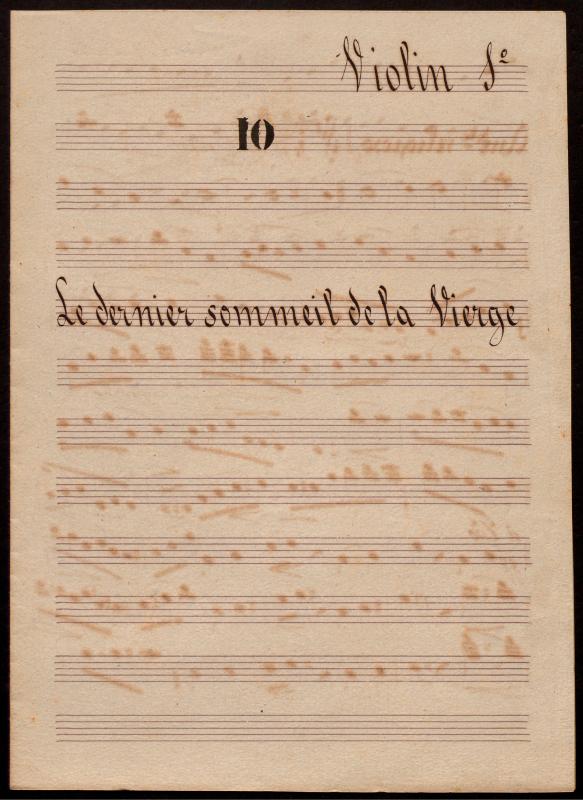 Violin 1º
10
Le dernier sommeil de la Vierge